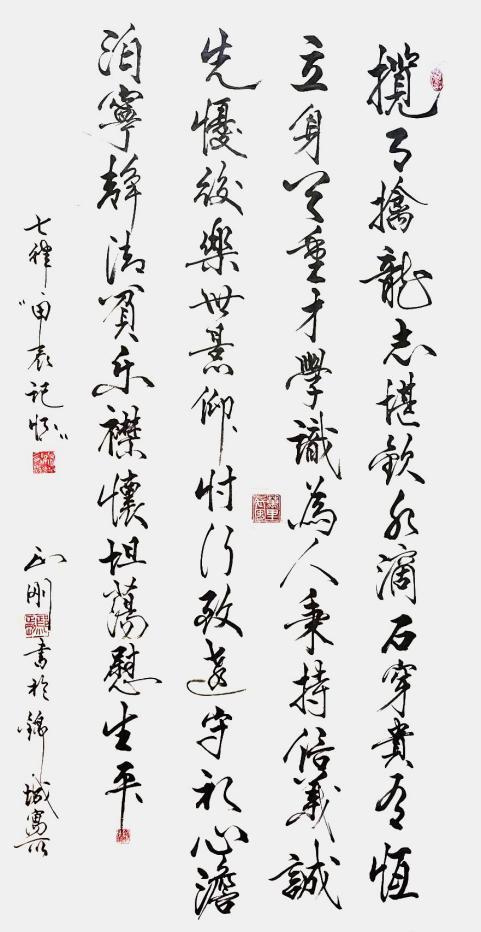 攬月擒龍志堪欽水滴石穿貴有恆
立身重才學識為人秉持信義誠
先懮後樂世景仰忖行致遠守初心澹
泊寧靜清貧乐襟懷坦蕩慰生平
七律“甲辰記懷”
剛書於錦城寓所